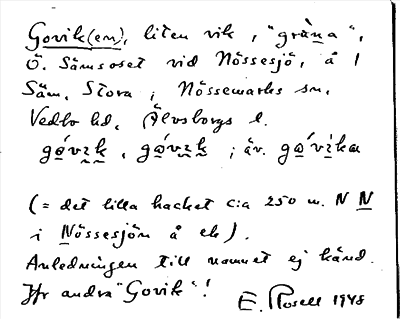 Govik(en), liten vik, "gräna",
Ö. Sämsoset vid Nössesjö, å 1
Säm, Stora, Nössemarks sn,
Vedbo hd, Älvsborgs l.
; äv.
(= det lilla hacket c:a 250 m. N N
i Nössesjön å ek).
Anledningen till namnet ej känd.
Jfr andra "Govik"!
E. Rosell 1948